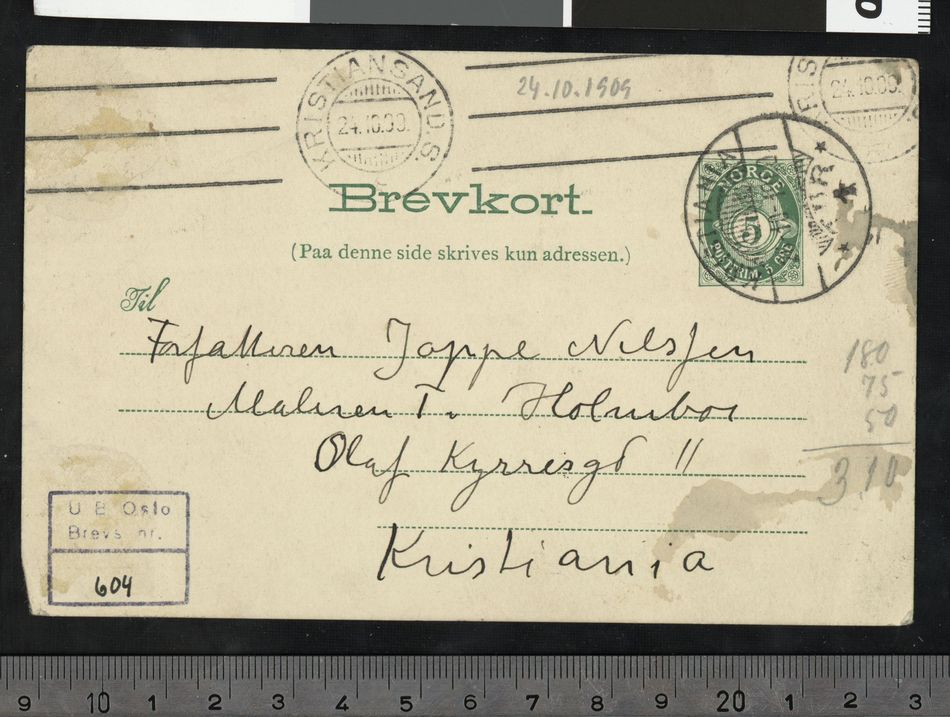 KRISTIANSAND.S.
24.10.09.
24.10.1909
24.10.09.
Brevkort.
(Paa denne side skrives kun adressen.)
NORGE
5
POSTFRIM. 5 ØRE
Til
Forfatteren Jappe Nilssen
Maleren T. Holmboe
Olaf Kyrresgd 11
Kristiania
180
75
50
3.10
U B Oslo
Brevs. nr.
604
9 10 1 2 3 4 5 6 7 8 9 20 1 2 3